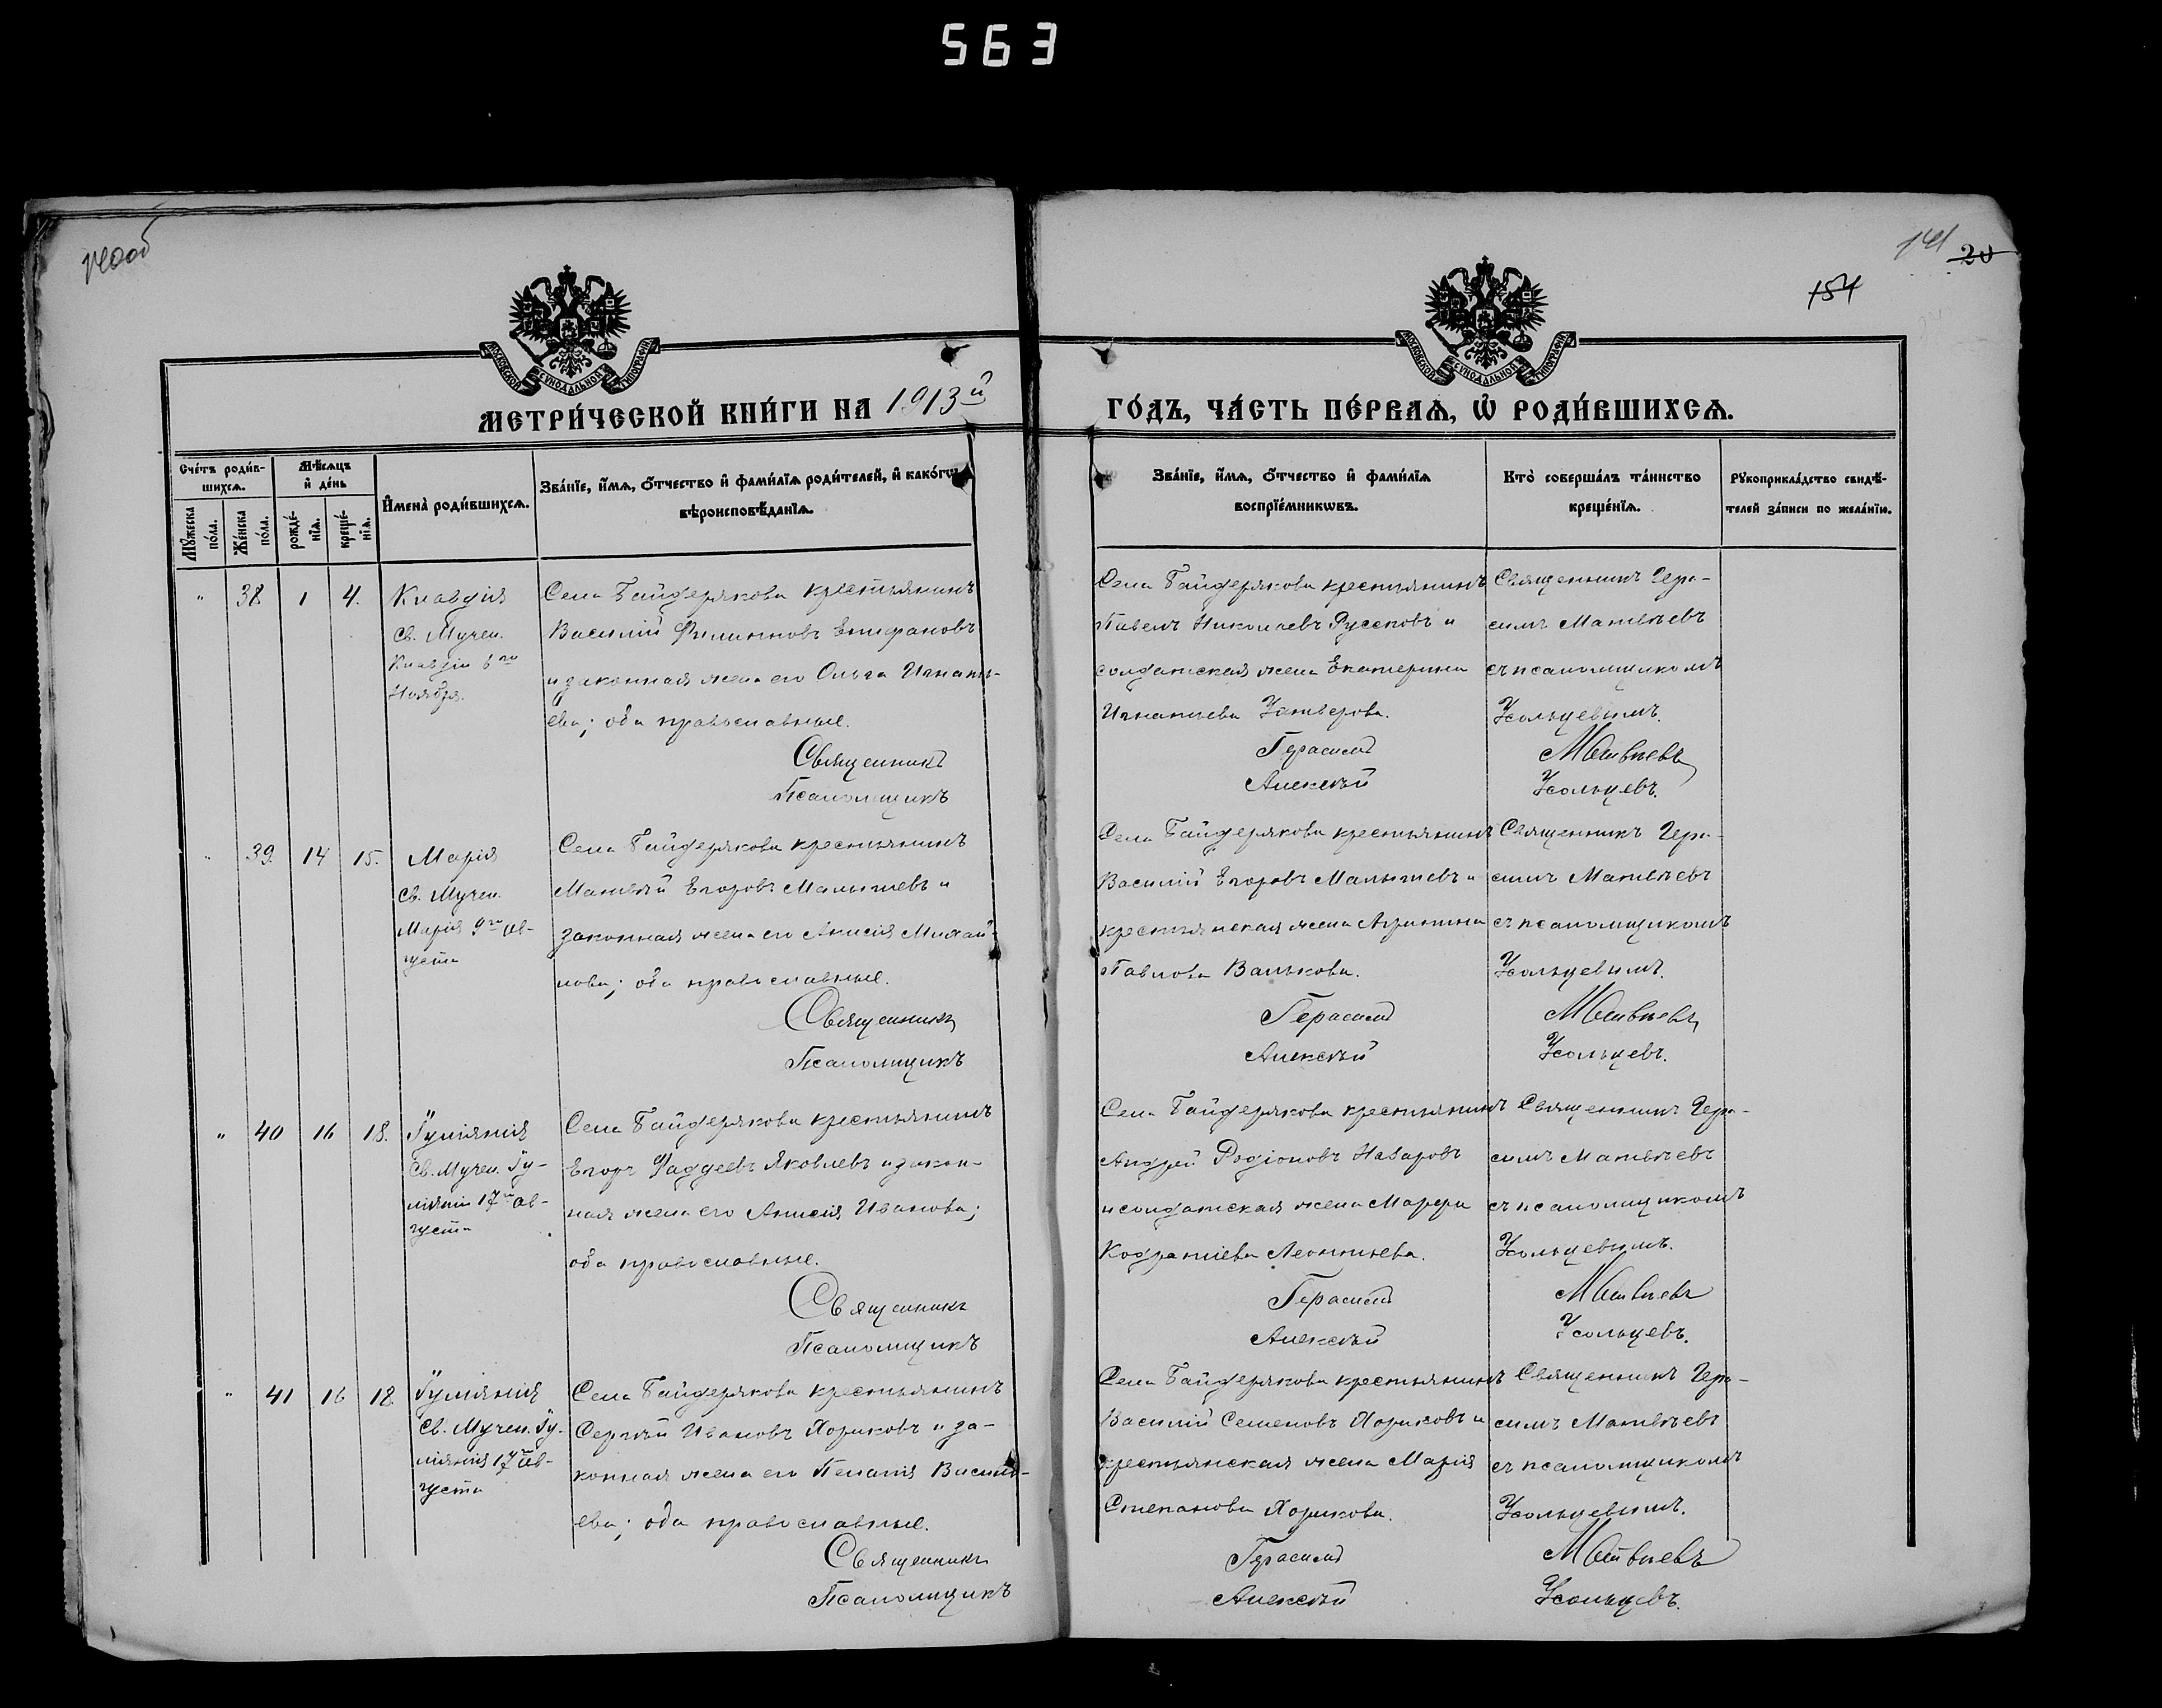 563
140об
141
20
154
МОСКОВСКОЙ СѴНОДАЛЬНОЙ ТИПОГРАФІИ
МОСКОВСКОЙ СѴНОДАЛЬНОЙ ТИПОГРАФІИ
МЕТРИ́ЧЕСКОЙ КНИ́ГИ НА 1913й
ГО́ДЪ, ЧА́СТЬ ПЕ́РВАѦ, Ѡ҆ РОДИ́ВШИХСѦ.
Сче́тъ роди́в-
шихсѧ.
Мѣ́сѧцъ
и҆ де́нь
Мꙋ́жеска по́ла.
Же́нска по́ла.
рожде́-
нїѧ.
креще́-
нїѧ.
И҆мена̀ роди́вшихсѧ.
Зва́нїе, и҆́мѧ, ѻ҆́тчество и҆ фами́лїѧ роди́телей, и҆ како́гѡ
вѣроисповѣ́данїѧ.
Зва́нїе, и҆́мѧ, ѻ҆́тчество и҆ фами́лїѧ
воспрїе́мникѡвъ.
Кто̀ соверша́лъ та́инство
креще́нїѧ.
Рꙋкоприкла́дство свидѣ́-
телей за́писи по жела́нїю.
" 38 1 4. Клавдія
Св. Мучен.
Клавдіи 6го
Ноября.
Села Байдерякова крестьянинъ
Василій Филипповъ Епифановъ
и законная жена его Ольга Игнать-
ева; оба православные.
Священникъ
Псаломщикъ
Села Байдерякова крестьянинъ
Павелъ Николаевъ Русковъ и
солдатская жена Екатерина
Игнатьева
Герасимъ
Алексѣй
Священникъ Гера-
симъ Матвѣевъ
съ псаломщикомъ
Усольцевымъ.
Матвѣевъ
Усольцевъ.
" 39. 14 15. Марія
Св. Мучен.
Марія 9го ав-
густа
Села Байдерякова крестьянинъ
Матвѣй Егоровъ Малышевъ и
законная жена его Анисія Михай-
лова; оба православные.
Священникъ
Псаломщикъ
Села Байдерякова крестьянинъ
Василій Егоровъ Малышевъ и
крестьянская жена Агрипина
Павлова Валькова.
Герасимъ
Алексѣй
Священникъ Гера-
симъ Матвѣевъ
съ псаломщикомъ
Усольцевымъ.
Матвѣевъ
Усольцевъ.
" 40 16 18. Іуліанія
Св. Мучен. Іу-
ліаніи 17го ав-
густа
Села Байдерякова крестьянинъ
Егоръ Фаддеевъ Яковлевъ и закон-
ная жена его Анисія Иванова;
оба православные.
Священникъ
Псаломщикъ
Села Байдерякова крестьянинъ
Андрей Родіоновъ Назаровъ
и солдатская жена Марфа
Кодратіева Леонтьева.
Герасимъ
Алексѣй
Священникъ Гера-
симъ Матвѣевъ
съ псаломщикомъ
Усольцевымъ.
Матвѣевъ
Усольцевъ.
" 41 16 18. Іуліанія
Св. Мучен. Іу-
ліанія 17го ав-
густа
Села Байдерякова крестьянинъ
Сергѣй Ивановъ Хориковъ и за-
конная жена его Пелагія Василь-
ева; оба православные.
Священникъ
Псаломщикъ
Села Байдерякова крестьянинъ
Василій Семеновъ Хориковъ и
крестьянская жена Марія
Степанова Хорикова.
Герасимъ
Алексѣй
Священникъ Гера-
симъ Матвѣевъ
съ псаломщикомъ
Усольцевымъ.
Матвѣевъ
Усольцевъ.